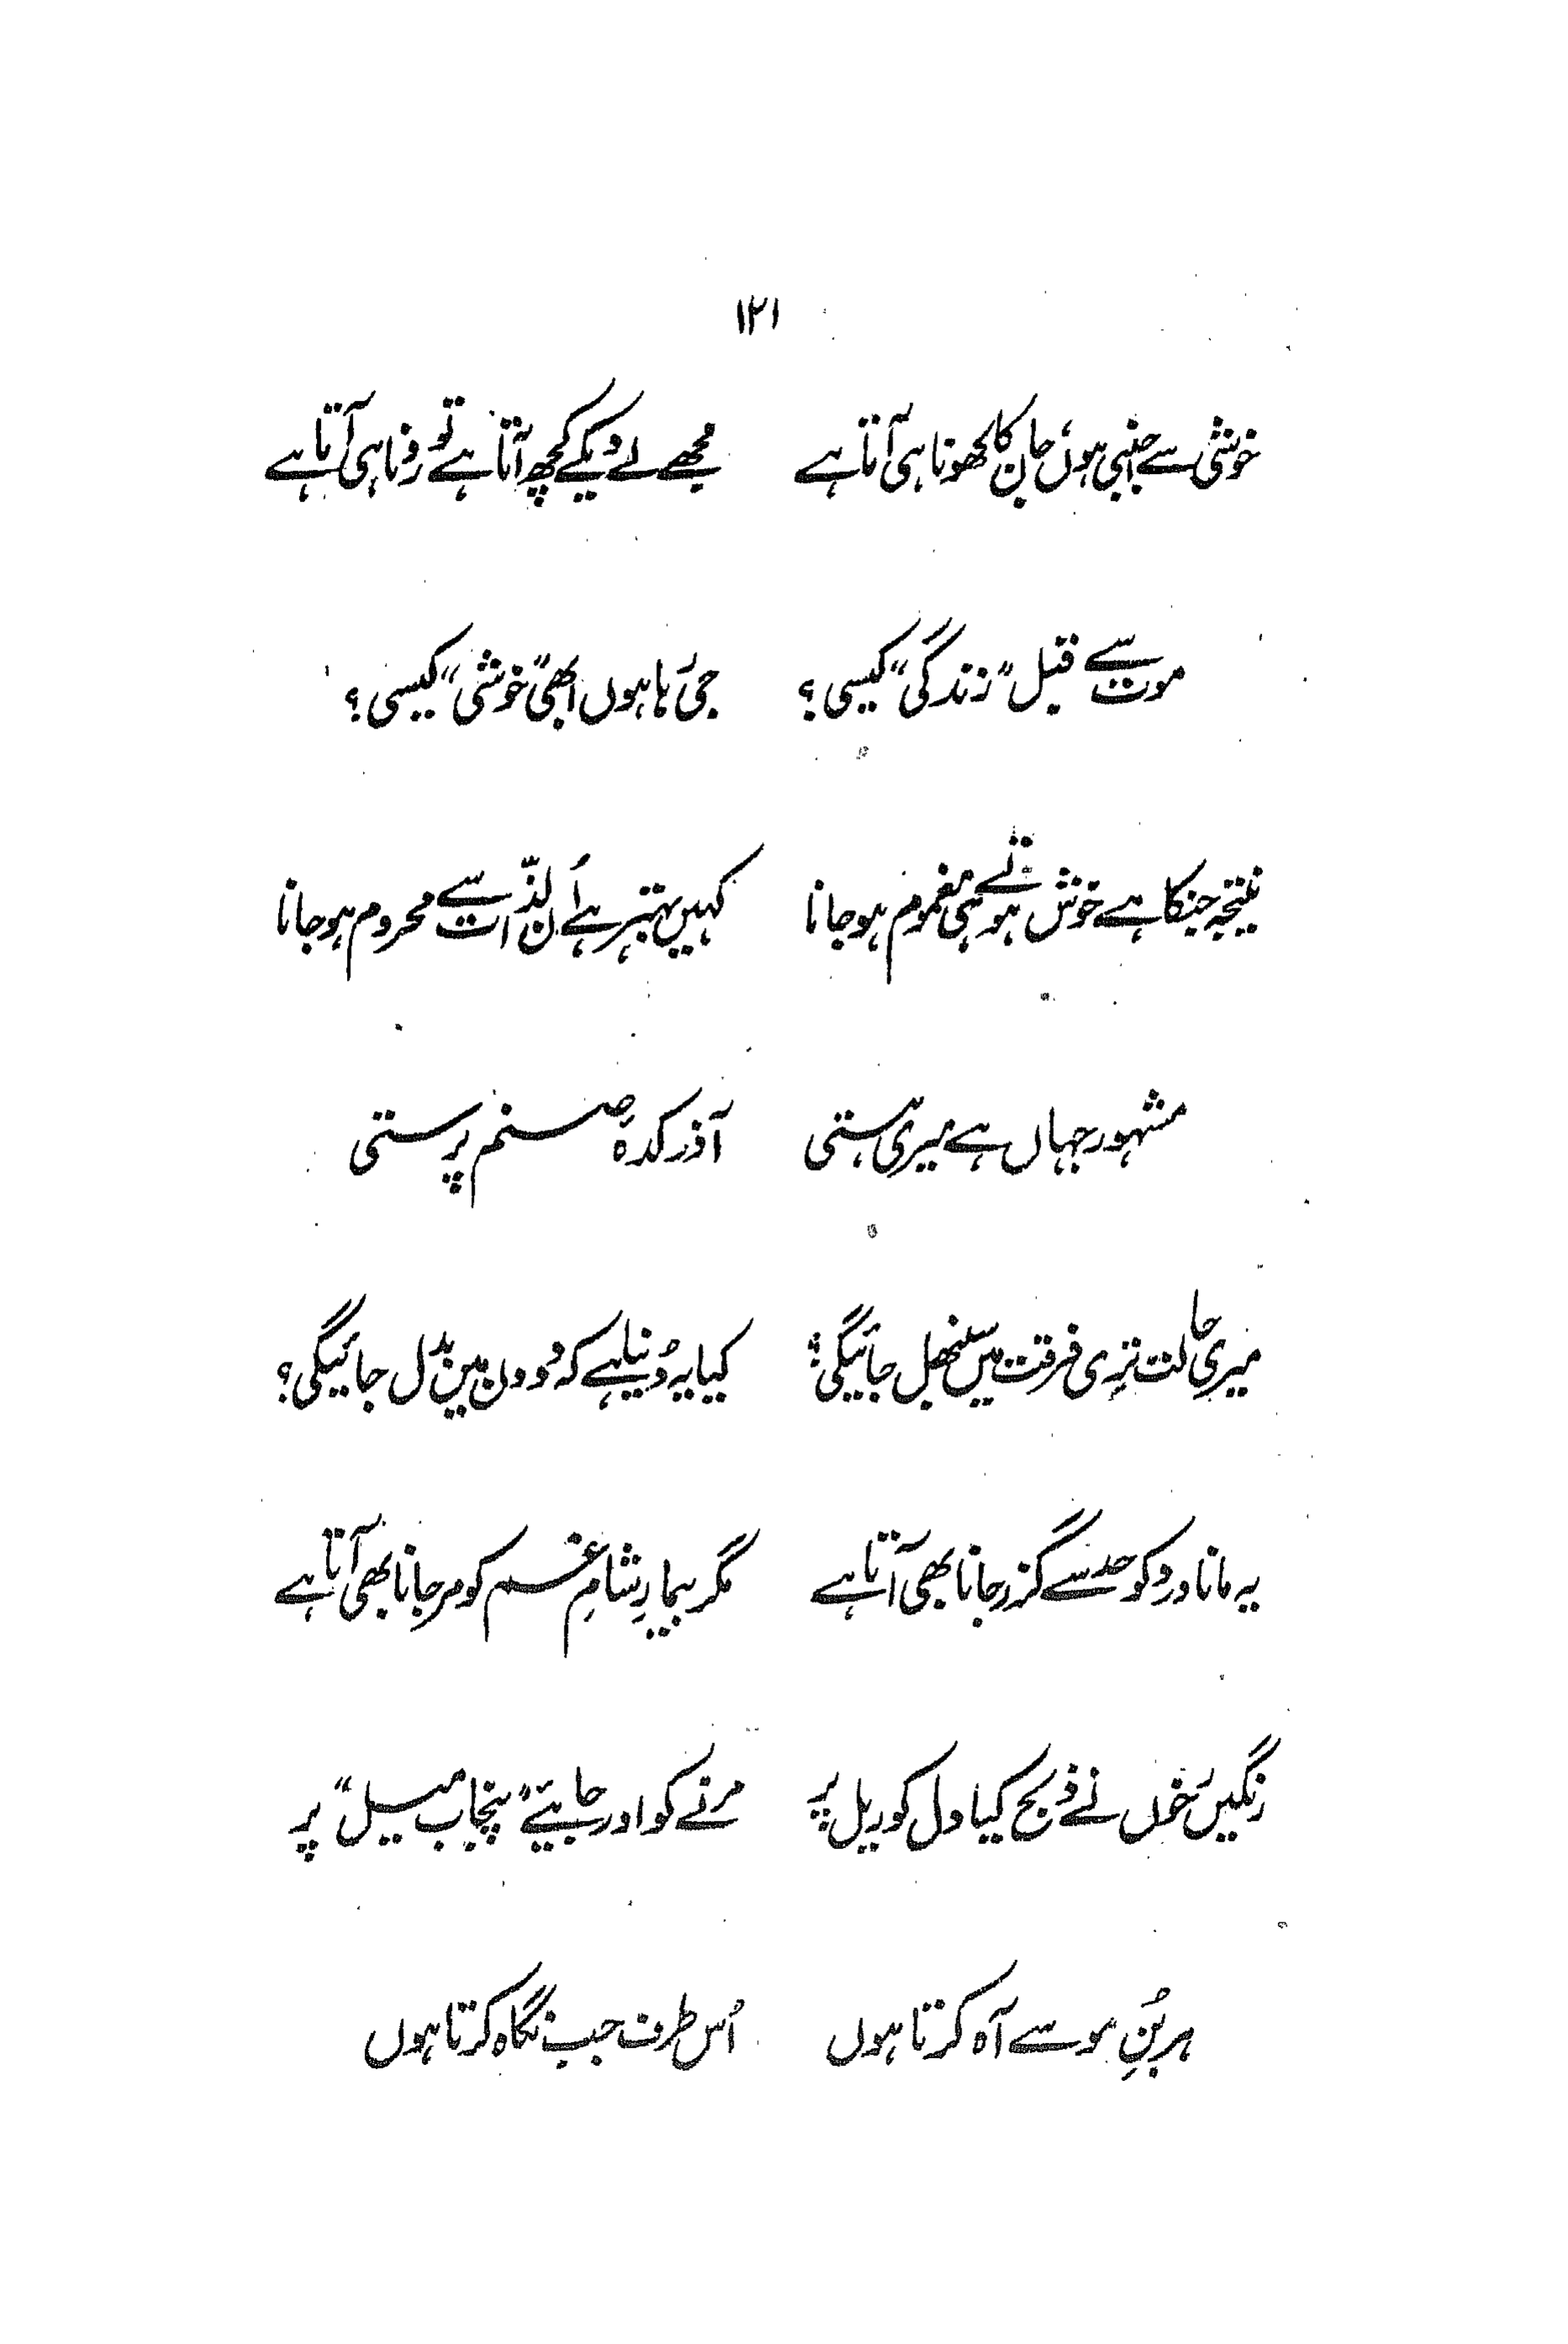 ۱۲۱
خوشی سے اجنبی ہوں، جان کا کھونا ہی آتا ہے
مجھے لے دیکے کچھ آتا ہے تو رونا ہی آتا ہے
موت سے قبل "زندگی" کیسی؟
جی رہا ہوں ابھی "خوشی" کیسی؟
نتیجہ جنکا ہے خوش ہوتے ہی مغموم ہو جانا
کہیں بہتر ہے اُن لذّات سے محروم ہو جانا
مشہور جہاں ہے میری ہستی
آذر کدہٴ صنم پرستی
میری حالت تِری فرقت میں سنبھل جائیگی؟
کیا یہ دُنیا ہے کہ دو دن میں بدل جائیگی؟
یہ مانا درد کو حد سے گزر جانا بھی آتا ہے
مگر بیمارِ شامِ غم کو مر جانا بھی آتا ہے
رنگیں نے ذبح کیا دل کو ریل پر
مرنے کو اور جایئے "پنجاب میل" پر
ہر بُنِ مو سے آہ کرتا ہوں
اُس طرف جب نگاہ کرتا ہوں